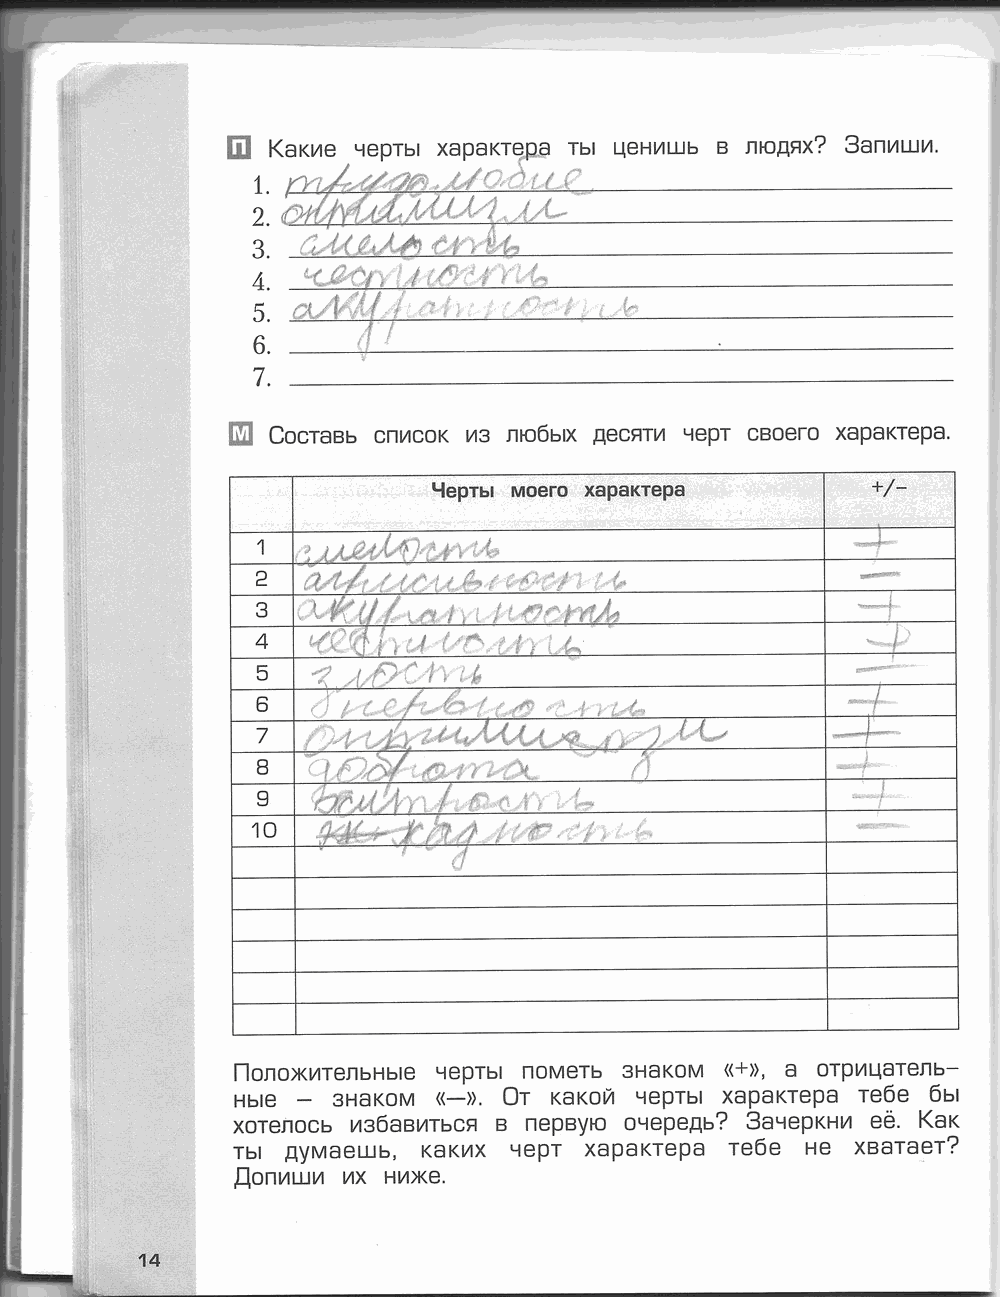 П Какие черты характера ты ценишь в людях? Запиши.
1. трудолюбие
2. оптимизм
3. смелость
4. честность
5. акуратность
6.
7.
М Составь список из любых десяти черт своего характера.
Черты моего характера +/-
1 смелость +
2 агрисивность —
3 акуратность +
4 честность +
5 злость —
6 нервность +
7 оптимизм +
8 доброта +
9 хитрость +
10 жадность —
Положительные черты пометь знаком «+», а отрицатель-
ные – знаком «—». От какой черты характера тебе бы
хотелось избавиться в первую очередь? Зачеркни её. Как
ты думаешь, каких черт характера тебе не хватает?
Допиши их ниже.
14